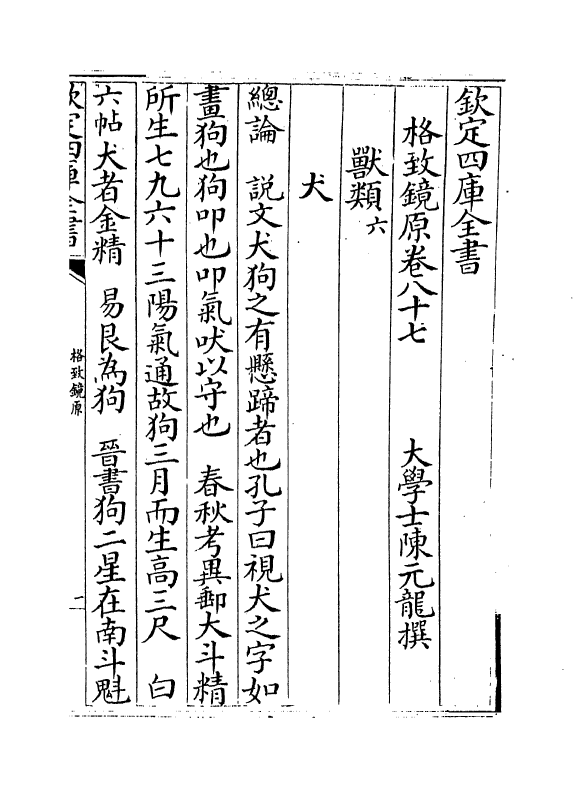 欽定四庫全書
格致鏡原卷八十七　大學士陳元龍撰
獸類六
犬
總論　説文犬狗之有懸蹄者也孔子曰視犬之字如
畫狗也狗叩也叩氣吠以守也　春秋考異郵大斗精
所生七九六十三陽氣通故狗三月而生高三尺　白
六帖犬者金精　易艮為狗　晉書狗二星在南斗魁
欽定四庫全書
格致鏡原